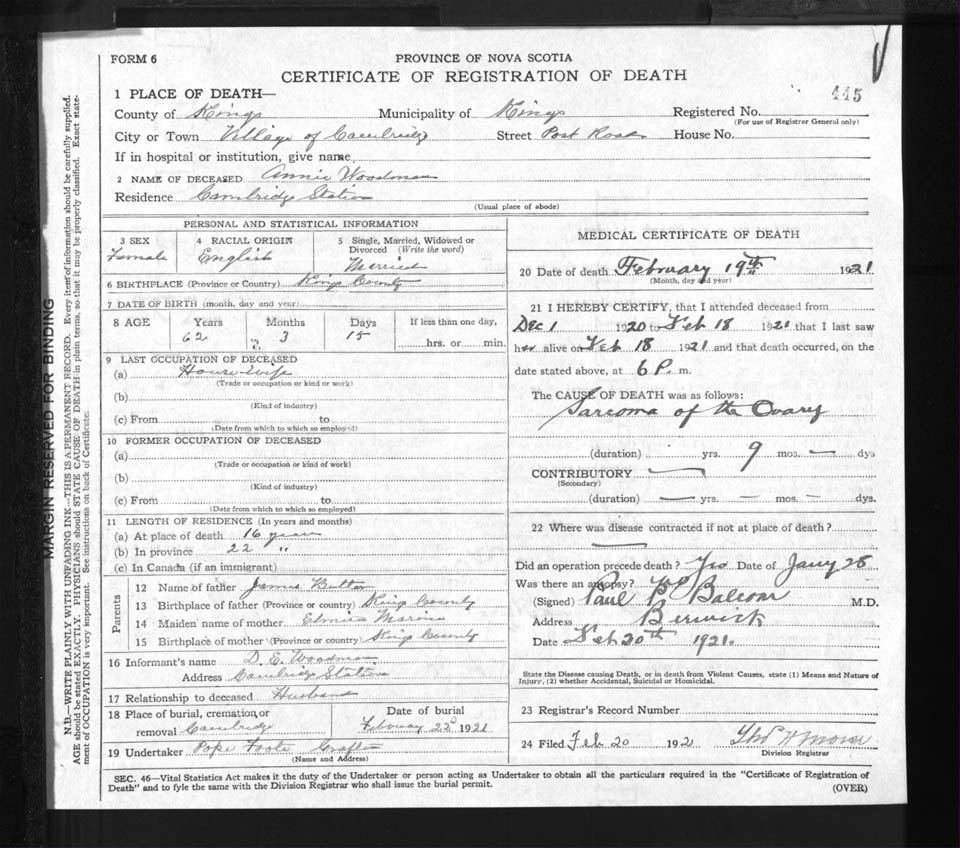 FORM 6
PROVINCE OF NOVA SCOTIA
CERTIFICATE OF REGISTRATION OF DEATH
445
1 PLACE OF DEATH—
County of Kings Municipality of Kings Registered No.
(For use of Registrar General only)
City or Town Village of Cambridg Street Post Road House No.
If in hospital or institution, give name
2 NAME OF DECEASED Annie Woodman
Residence Cambridge Station
(Usual place of abode)
PERSONAL AND STATISTICAL INFORMATION
3 SEX 4 RACIAL ORIGIN 5 Single, Married, Widowed or
Divorced (Write the word)
Female English Married
6 BIRTHPLACE (Province or Country) Kings County
7 DATE OF BIRTH (month, day and year)
8 AGE Years Months Days If less than one day,
62 3 15 hrs. or min.
9 LAST OCCUPATION OF DECEASED
(a) House-wife
(Trade or occupation or kind or work)
(b)
(Kind of industry)
(c) From to
(Date from which to which so employed)
10 FORMER OCCUPATION OF DECEASED
(a)
(Trade or occupation or kind of work)
(b)
(Kind of industry)
(c) From to
(Date from which to which so employed)
11 LENGTH OF RESIDENCE (In years and months)
(a) At place of death 16 years
(b) In province 22 "
(c) In Canada (if an immigrant)
Parents
12 Name of father James
13 Birthplace of father (Province or country) Kings County
14 Maiden name of mother
15 Birthplace of mother (Province or country) Kings County
16 Informant's name D. E. Woodman
Address Cambridge Station
17 Relationship to deceased Husband
18 Place of burial, cremation, or Date of burial
removal Cambridge February 22d 1921
19 Undertaker Pope Foote
(Name and Address)
MEDICAL CERTIFICATE OF DEATH
20 Date of death February 19th 1921
(Month, day and year)
21 I HEREBY CERTIFY, that I attended deceased from
Dec 1 1920 to Feb 18 1921 that I last saw
her alive on Feb 18 1921 and that death occurred, on the
date stated above, at 6 P. m.
The CAUSE OF DEATH was as follows:
Sarcoma of the Ovary
(duration) yrs. 9 mos. — dys
CONTRIBUTORY —
(Secondary)
(duration) — yrs. — mos. — dys.
22 Where was disease contracted if not at place of death?
—
Did an operation precede death? Yes Date of Jany 28
Was there an autopsy?
(Signed) Paul Balcom M.D.
Address Berwick
Date Feb 20th 1921.
State the Disease causing Death, or in death from Violent Causes, state (1) Means and Nature of
Injury, (2) whether Accidental, Suicidal or Homicidal.
23 Registrar's Record Number
24 Filed Feb 20 1921
Division Registrar
SEC. 46—Vital Statistics Act makes it the duty of the Undertaker or person acting as Undertaker to obtain all the particulars required in the "Certificate of Registration of
Death" and to fyle the same with the Division Registrar who shall issue the burial permit.
(OVER)
MARGIN RESERVED FOR BINDING
N.B.—WRITE PLAINLY WITH UNFADING INK—THIS IS A PERMANENT RECORD. Every item of information should be carefully supplied.
AGE should be stated EXACTLY. PHYSICIANS should STATE CAUSE OF DEATH in plain terms, so that it may be properly classified. Exact state-
ment of OCCUPATION is very important. See instructions on back of Certificate.